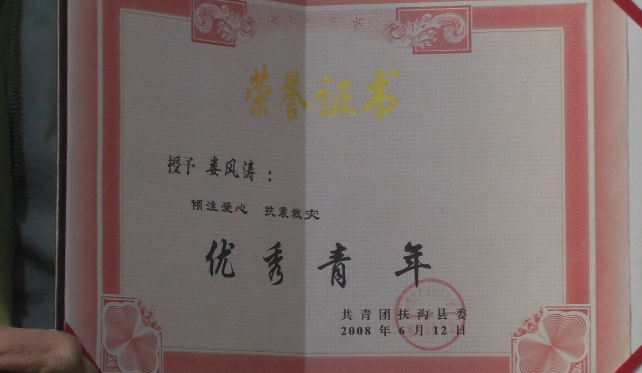 荣誉证书
授予 娄风涛：
倾注爱心 抗震救灾
优秀青年
共青团扶沟县委
2008年6月12日